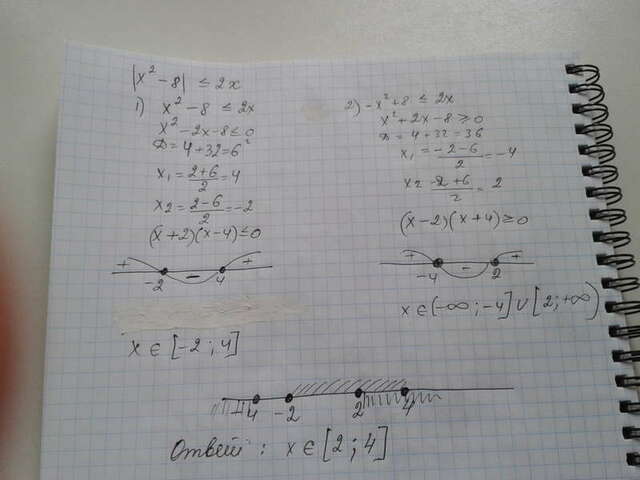 |x² - 8| ≤ 2x
1) x² - 8 ≤ 2x
x² - 2x - 8 ≤ 0
D = 4 + 32 = 6²
x₁ = (2+6)/2 = 4
x₂ = (2-6)/2 = -2
(x+2)(x-4) ≤ 0
+ - +
-2 4
x ∈ [-2; 4]
2) -x² + 8 ≤ 2x
x² + 2x - 8 ≥ 0
D = 4 + 32 = 36
x₁ = (-2-6)/2 = -4
x₂ = (-2+6)/2 = 2
(x-2)(x+4) ≥ 0
+ - +
-4 2
x ∈ (-∞; -4] ∪ [2; +∞)
-4 -2 2 4
Ответ: x ∈ [2; 4]